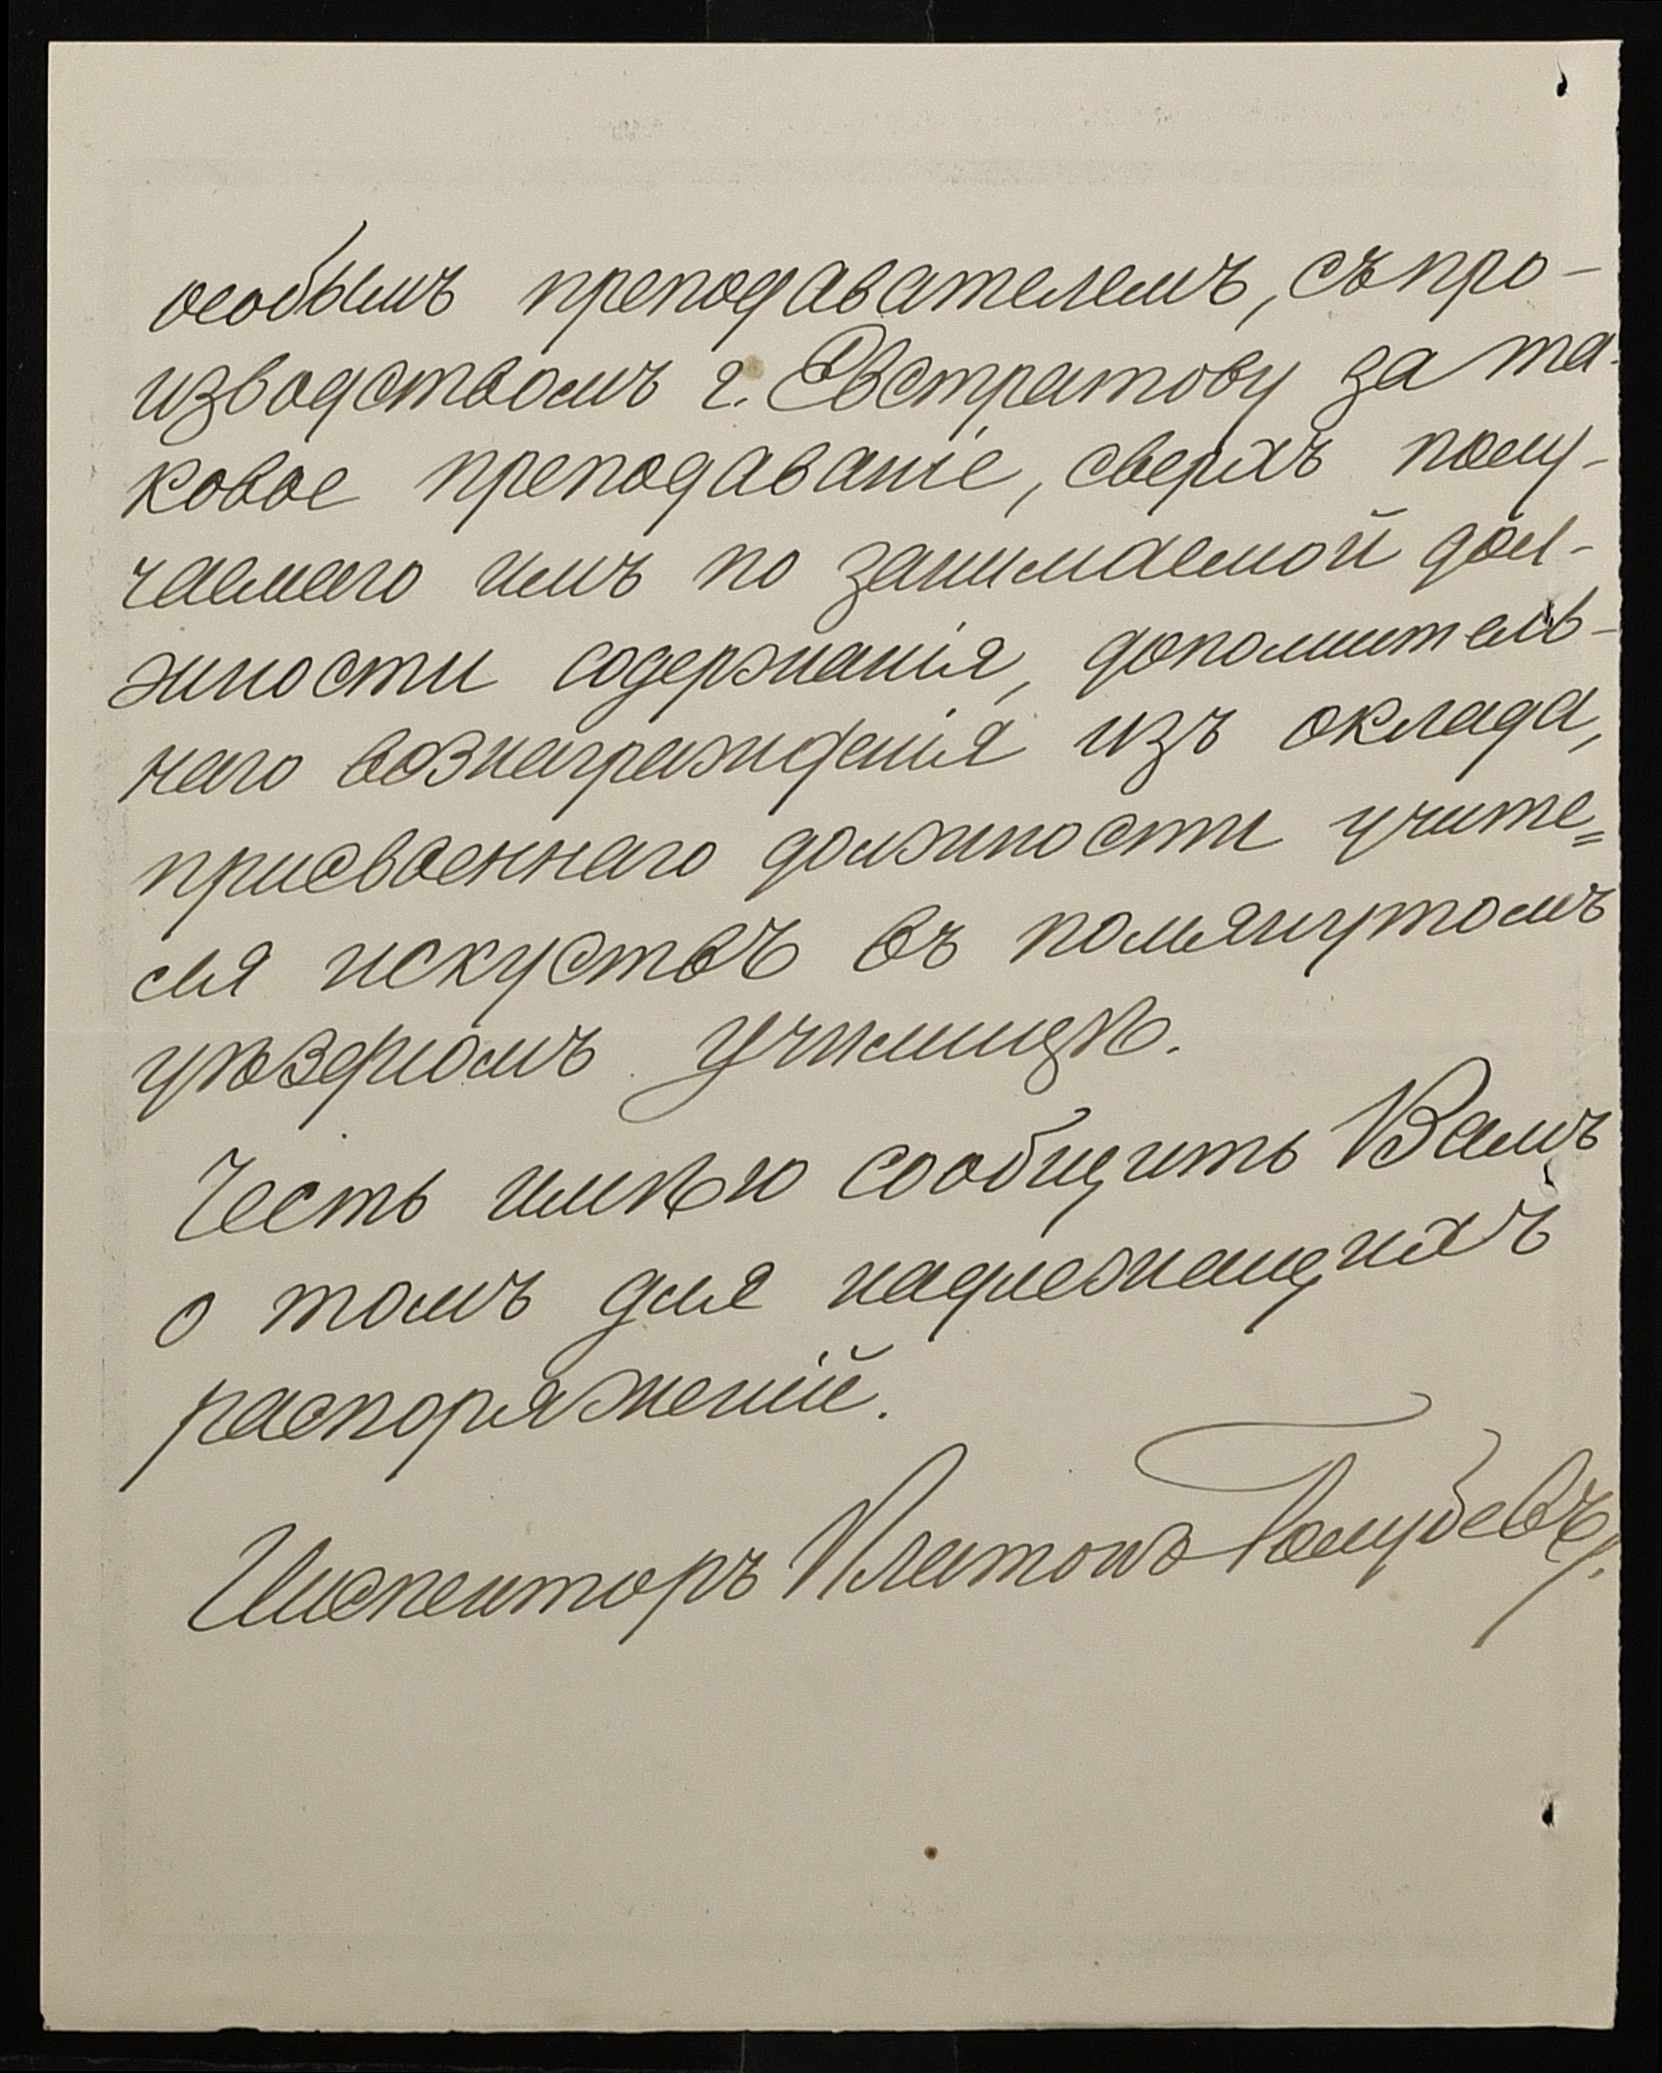 особымъ преподавателемъ, съ про-
изводствомъ г. Евстратову за та-
ковое преподаваніе, сверхъ полу-
чаемаго имъ по занимаемой дол-
жности содержанія, дополнитель-
наго вознагражденія изъ оклада,
присвоеннаго должности учите=
ля искуствъ въ помянутомъ
уѣздномъ училищѣ.
Честь имѣю сообщить Вамъ
о томъ для надлежащихъ
распоряженій.
Инспекторъ Платонъ Голубевъ.